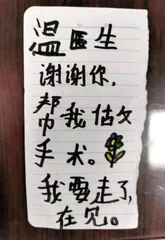 温医生
谢谢你,
帮我估文
手术。
我要走了,
在见。